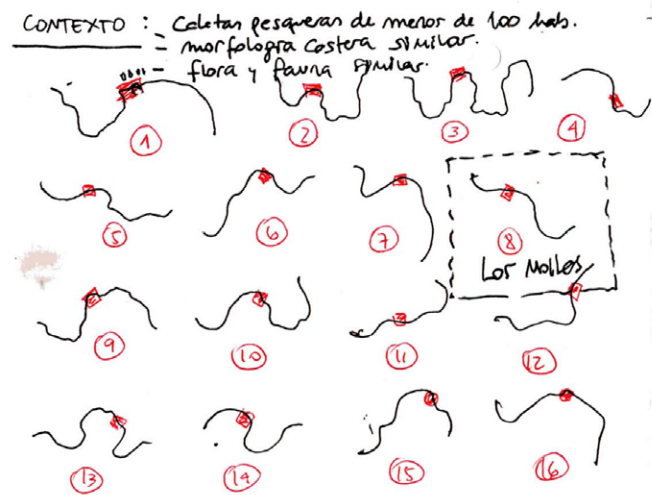 CONTEXTO : - Caletas pesqueras de menos de 100 hab.
- morfología costera similar.
- flora y fauna similar.
1 2 3 4
5 6 7 8
Los Molles
9 10 11 12
13 14 15 16